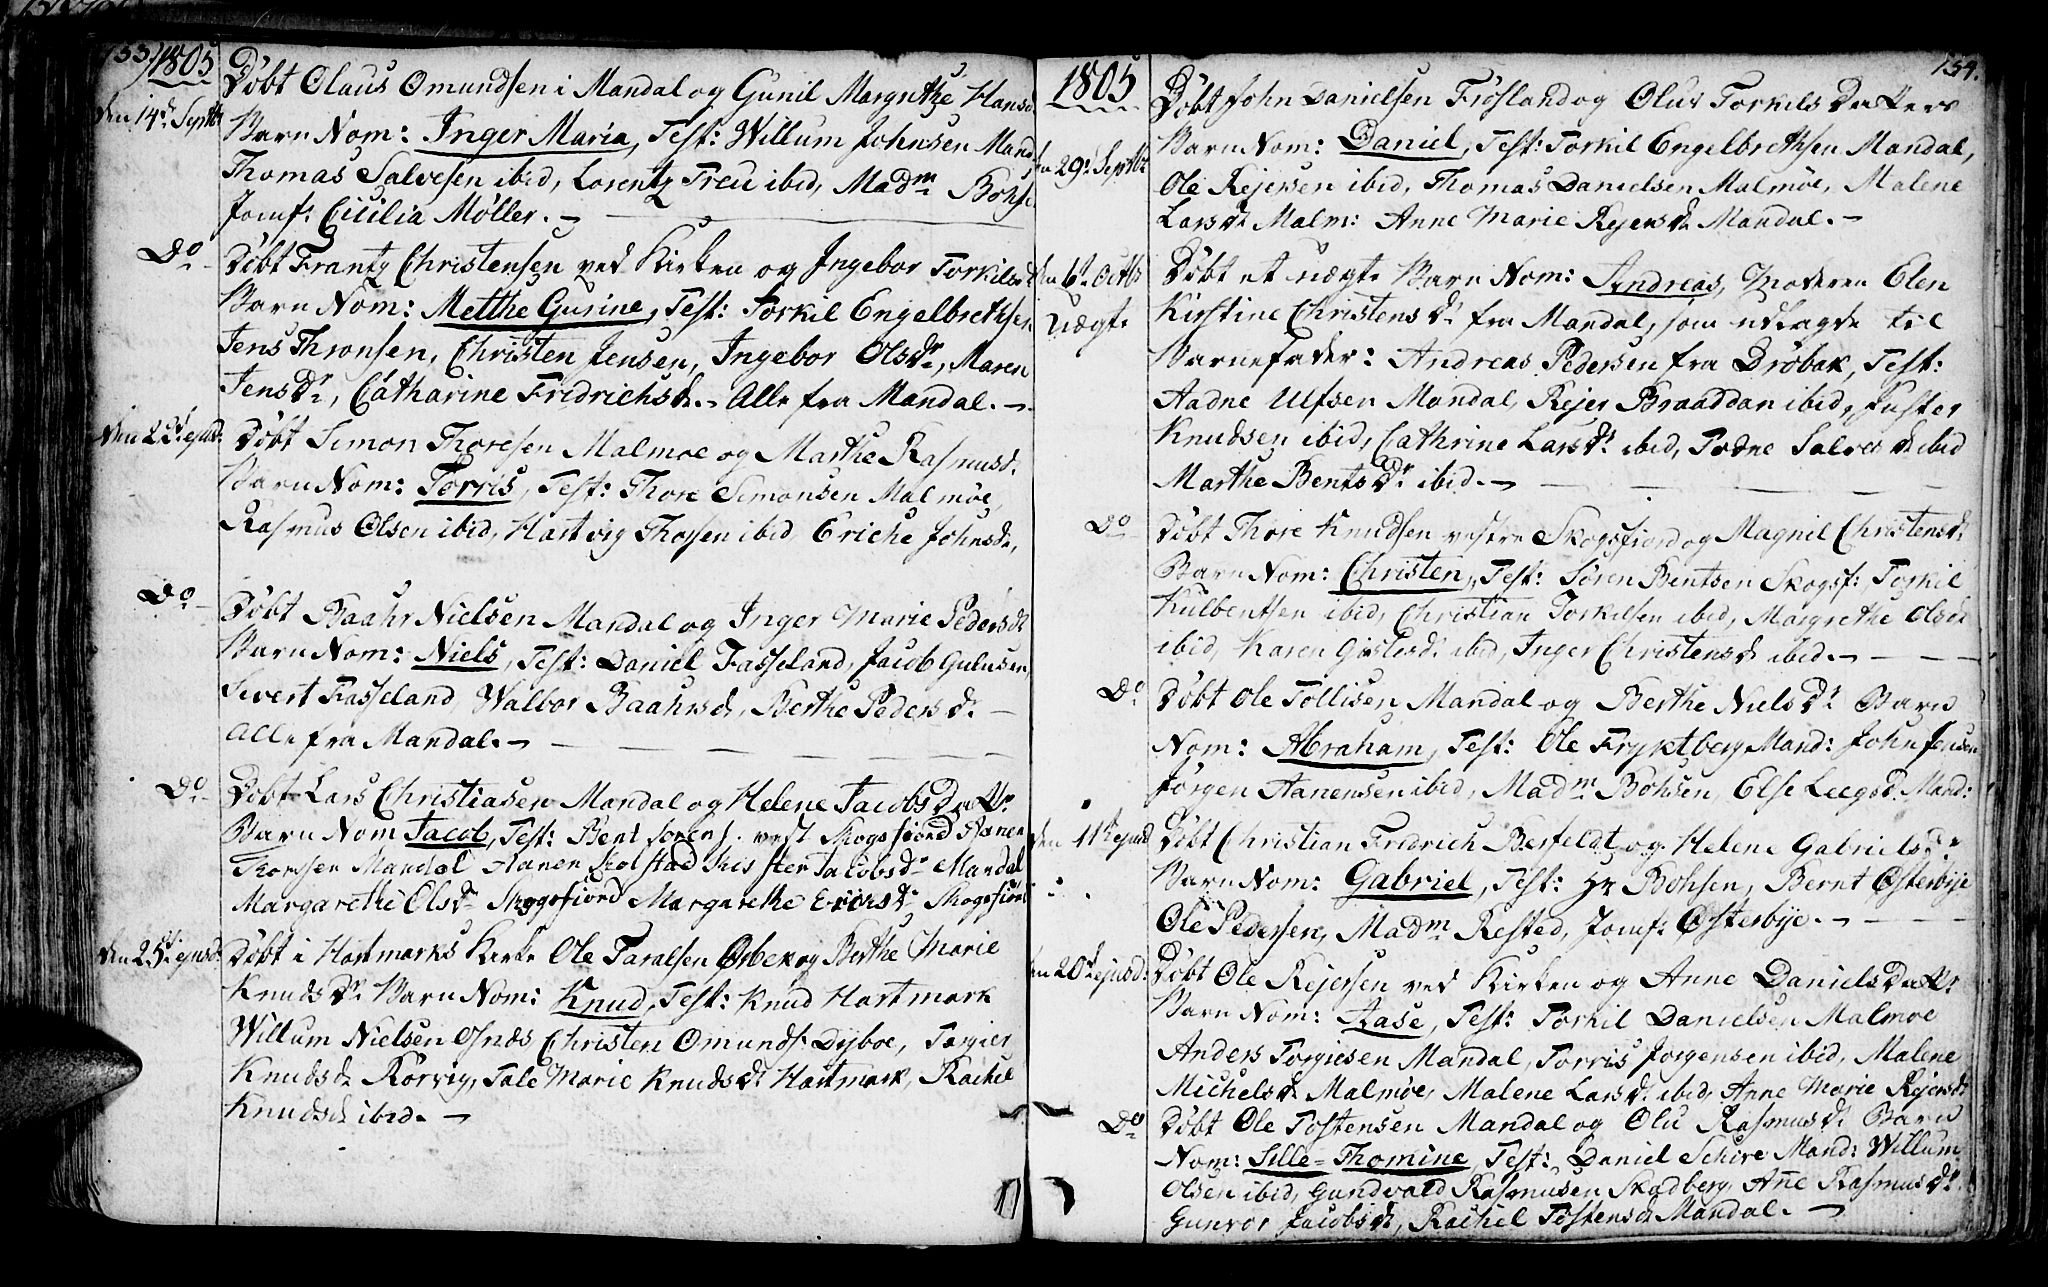 153) 1805
den 14de Septbr
Døbt Olaus Omundsen i Mandal og Gunil Margrethe Hansd
Barn Nom: Inger Maria, Test: Willum Johnsen Mand
Thomas Salvesen ibid, Lorentz Treu ibid, Madm Bohse
Jomf: Cicilia Møller. —
Do
Døbt Frantz Christensen ved Kirken og Ingebor Torkilsd
Barn Nom: Metthe Gurine, Test: Torkil Engelbrethsen
Jens Thronsen, Christen Jensen, Ingebor Olsdr, Maren
Jensdr, Catharine Fridrichsd. Alle fra Mandal. —
Døbt Simon Thoresen Malmoe og Marthe Rasmusd.
Barn Nom: Torris, Test: Thore Simonsen Malmøe,
Rasmus Olsen ibid, Hartvig Thorsen ibid Eriche Johnsdr,
Do
Døbt Baahr Nielsen Mandal og Inger Marie Pedersdr
Barn Nom: Niels, Test: Daniel Fasseland, Jacob Gulusen,
Sivert Fasseland, Walbor Baahrsd, Berthe Pedersdr —
Alle fra Mandal. —
Do
Døbt Lars Christiasen Mandal og Helene Jacobs Dattr
Barn Nom Jacob, Test: Bent Sørens. vest Skogsfiord Aanen
Thorsen Mandal Aanen Holstad Jacobsdr Mandal
Margarethe Olsdr Skogsfiord Margarethe Ericsdr Skogsfiord
den 25de ejusd:
Døbt i Hartmarks Kirke Ole Taralsen Orbek og Berthe Marie
Knudsdr Barn Nom: Knud, Test: Knud Hartmark
Willum Nielsen Osnæs Christen Omunds: Dyboe, Torgier
Knudsdr Rørvig, Tale Marie Knudsdr Hartmark, Rachel
Knudsd ibid. —
154.
1805
29de Septbr
Døbt John Danielsen Frøsland og Olus Torkils Datters
Barn Nom: Daniel, Test: Torkil Engelbrethsen Mandal,
Ole Rejersen ibid, Thomas Danielsen Malmøe, Malene
Larsdr Malm: Anne Marie Rejersdr Mandal. —
den 6te Octbr
uægte
Døbt et uægte Barn Nom: Andreas, Moderen Elen
Kirstine Christensdr fra Mandal, som udlagde til
Barnefader: Andreas Pedersen fra Drøbak, Test:
Aadne Ulfsen Mandal, Rejer Braaddan ibid,
Knudsen ibid, Cathrine Larsdr ibid, Todne Salvesd ibid
Marthe Bentsdr ibid. —
Do
Døbt Thore Knudsen vestre Skogsfiord og Magnil Christensd.
Barn Nom: Christen, Test: Søren Bentsen Skogsf: Torkil
Kulbentsen ibid, Christian Torkilsen ibid, Margrethe Olsdr
ibid, Karen Gislesd. ibid, Inger Christensd ibid. —
Do
Døbt Ole Tollisen Mandal og Berthe Nielsdr Barn
Nom: Abraham, Test: Ole Fryktberg Mand: John Jensen
Jørgen Aanensen ibid, Madm Bohsen, Else Leegod Mand:
den 11te ejusd
Døbt Christian Fridrich Berfeldt og Helene Gabrielsdr
Barn Nom: Gabriel, Test: Hr Bohsen, Bernt Østerbye
Ole Pedersen, Madm Rested, Jomf: Østerbye. —
den 20de ejusd:
Døbt Ole Rejersen ved Kirken og Anne Daniels Dattr
Barn Nom: Aase, Test: Torkil Danielsen Malmoe
Anders Torgiesen Mandal, Torris Jorgensen ibid, Malene
Michelsdr Malmøe, Malene Larsdr ibid, Anne Marie Rejersdr
Do
Døbt Ole Tostensen Mandal og Olu Rasmusdr Barn
Nom: Sille=Thomine, Test: Daniel Schire Mand: Willum
Olsen ibid, Gundvald Rasmusen Skadberg, Añe Rasmusdr
Gunvor Jacobsdr, Rachel Tostensd Mandal. —